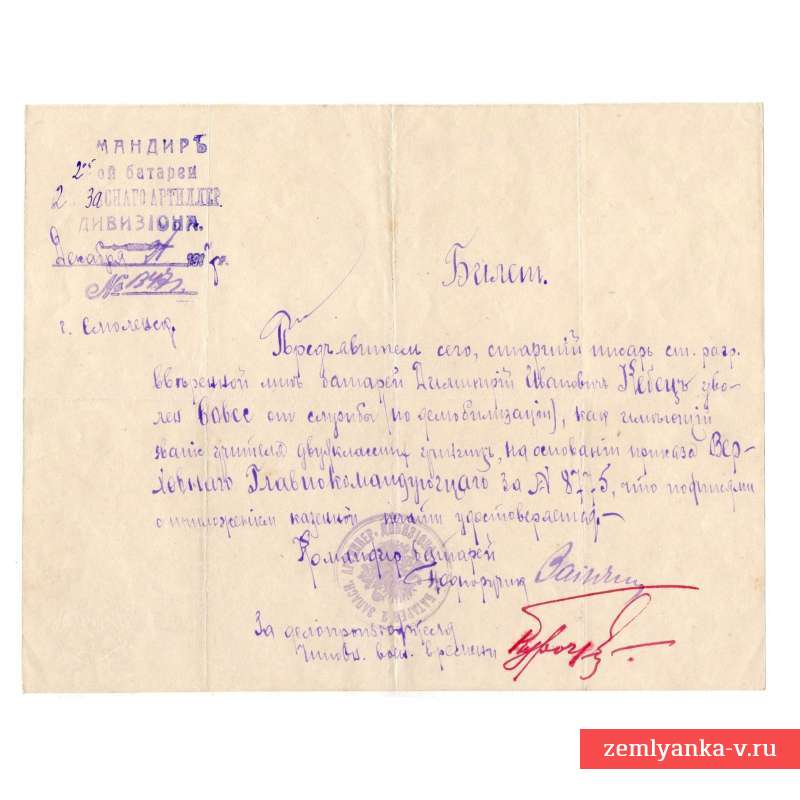 МАНДИРЪ
2ой батареи
2 Запаснаго АРТИЛЛЕР.
ДИВИЗІОНА.
Декабря 21
№ 1347
г. Смоленск.
Билет.
Предъявитель сего, старшій писарь ст. разр.
ввѣренной мнѣ батареи Иванович уво-
лен вовсе от службы (по демобилизаціи), как имѣющій
званіе учителя двухклассн. училищ, на основаніи приказа Вер-
ховнаго Главнокомандующаго за № 8775, что подписями
с приложеніем казенной печати удостовѣряется.—
Командир батареи
Подпоручик
За дѣлопроизводителя
Чиновн. воен. времени
zemlyanka-v.ru